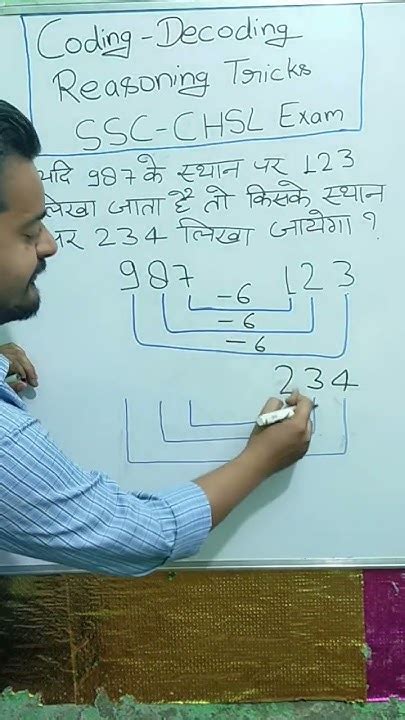 Coding-Decoding
Reasoning Tricks
SSC-CHSL Exam
यदि 987 के स्थान पर 123
लिखा जाता है तो किसके स्थान
पर 234 लिखा जायेगा ?
987 123
-6
-6
-6
234